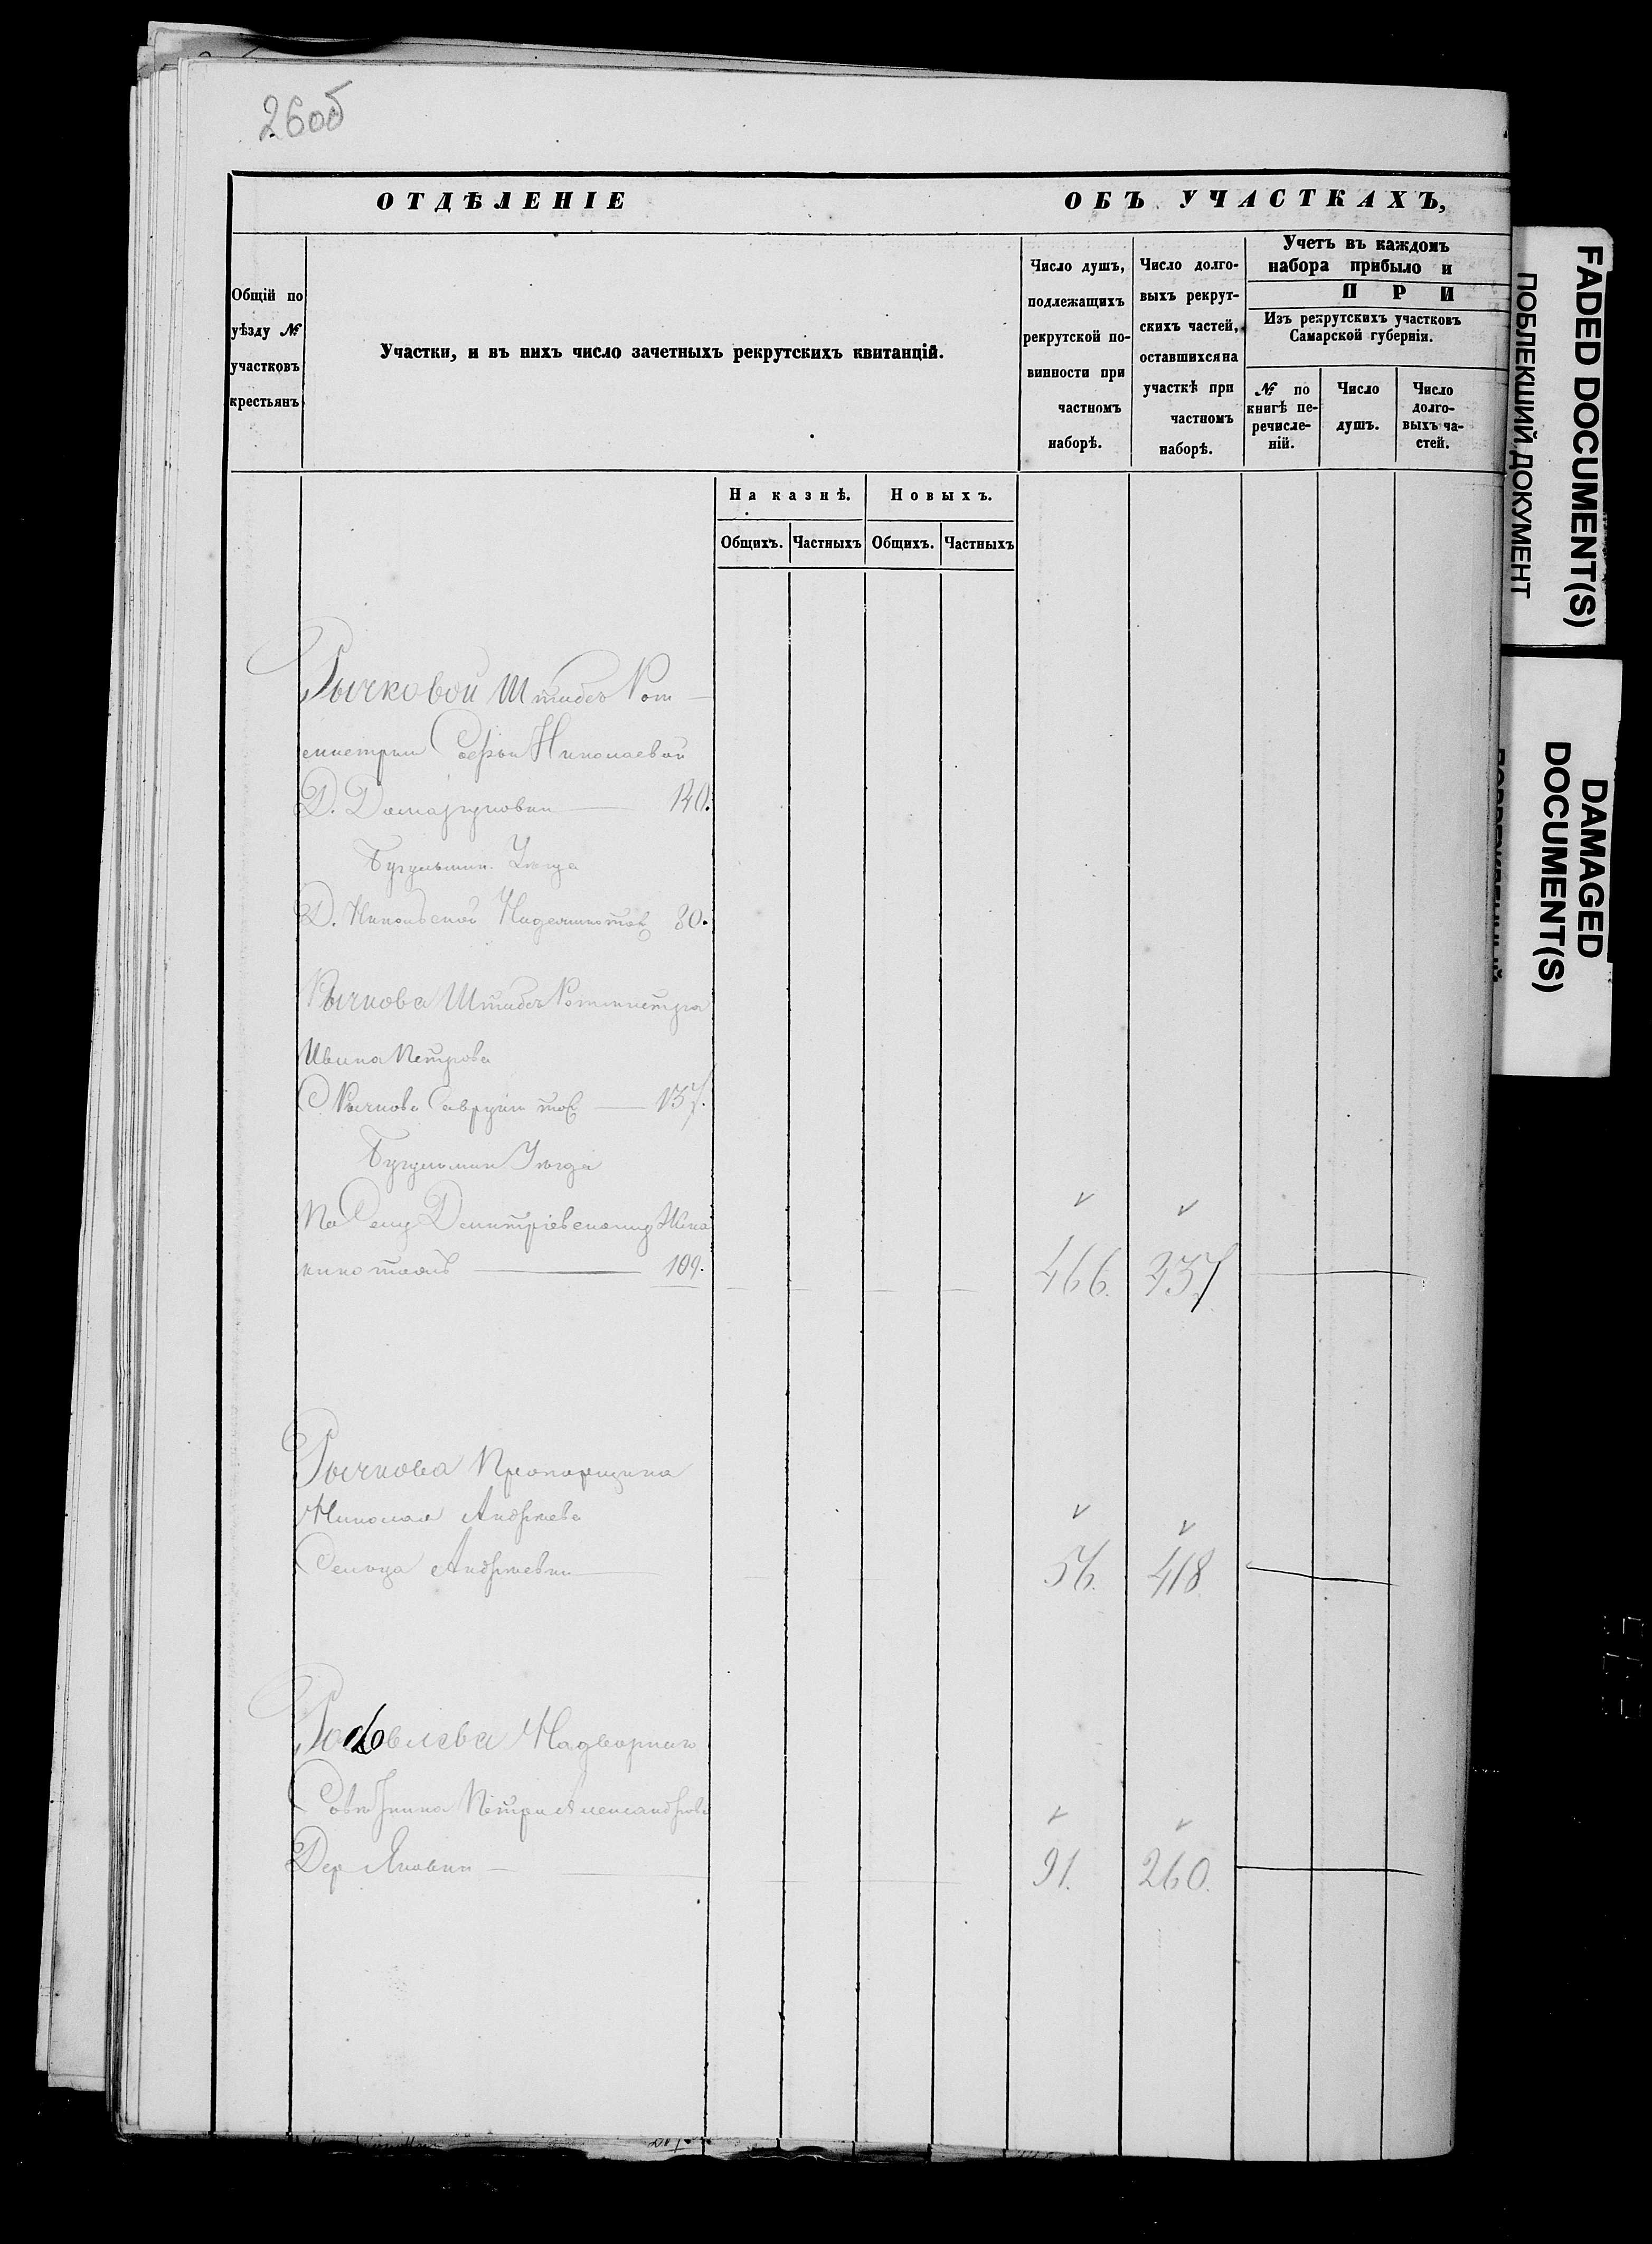 26об
ОТДѢЛЕНІЕ ОБЪ УЧАСТКАХЪ,
Общій по уѣзду № участковъ крестьянъ.
Участки, и въ нихъ число зачетныхъ рекрутскихъ квитанцій.
Число душъ, подлежащихъ рекрутской повинности при частномъ наборѣ.
Число долговыхъ рекрутскихъ частей, оставшихся на участкѣ при частномъ наборѣ.
Учетъ въ каждомъ
набора прибыло и
ПРИ
Изъ рекрутскихъ участковъ
Самарской губерніи.
№ по книгѣ перечисленій.
Число душъ.
Число долговыхъ частей.
На казнѣ. Новыхъ.
Общихъ. Частныхъ Общихъ. Частныхъ
Рычковой Штабсъ Рот
мистрши Софьи Николаевой
Д. 140.
Бугульмин. Уѣзда
Д. Никольской тожъ 80.
Рычкова Штабсъ Ротмистра
Ивана Петрова
С Рычкова тож 137.
Бугульмин Уѣзда
По Селу Дмитріевскому
тожъ 109. 466. 437
Рычкова Прапорщика
Николая Андреева
Сельца Андреевки 56. 418
Надворнаго
Совѣтника Петра Александрова
Дер Яковки 91. 260.
FADED DOCUMENT(S)
ПОБЛЕКШИЙ ДОКУМЕНТ
DAMAGED
DOCUMENT(S)